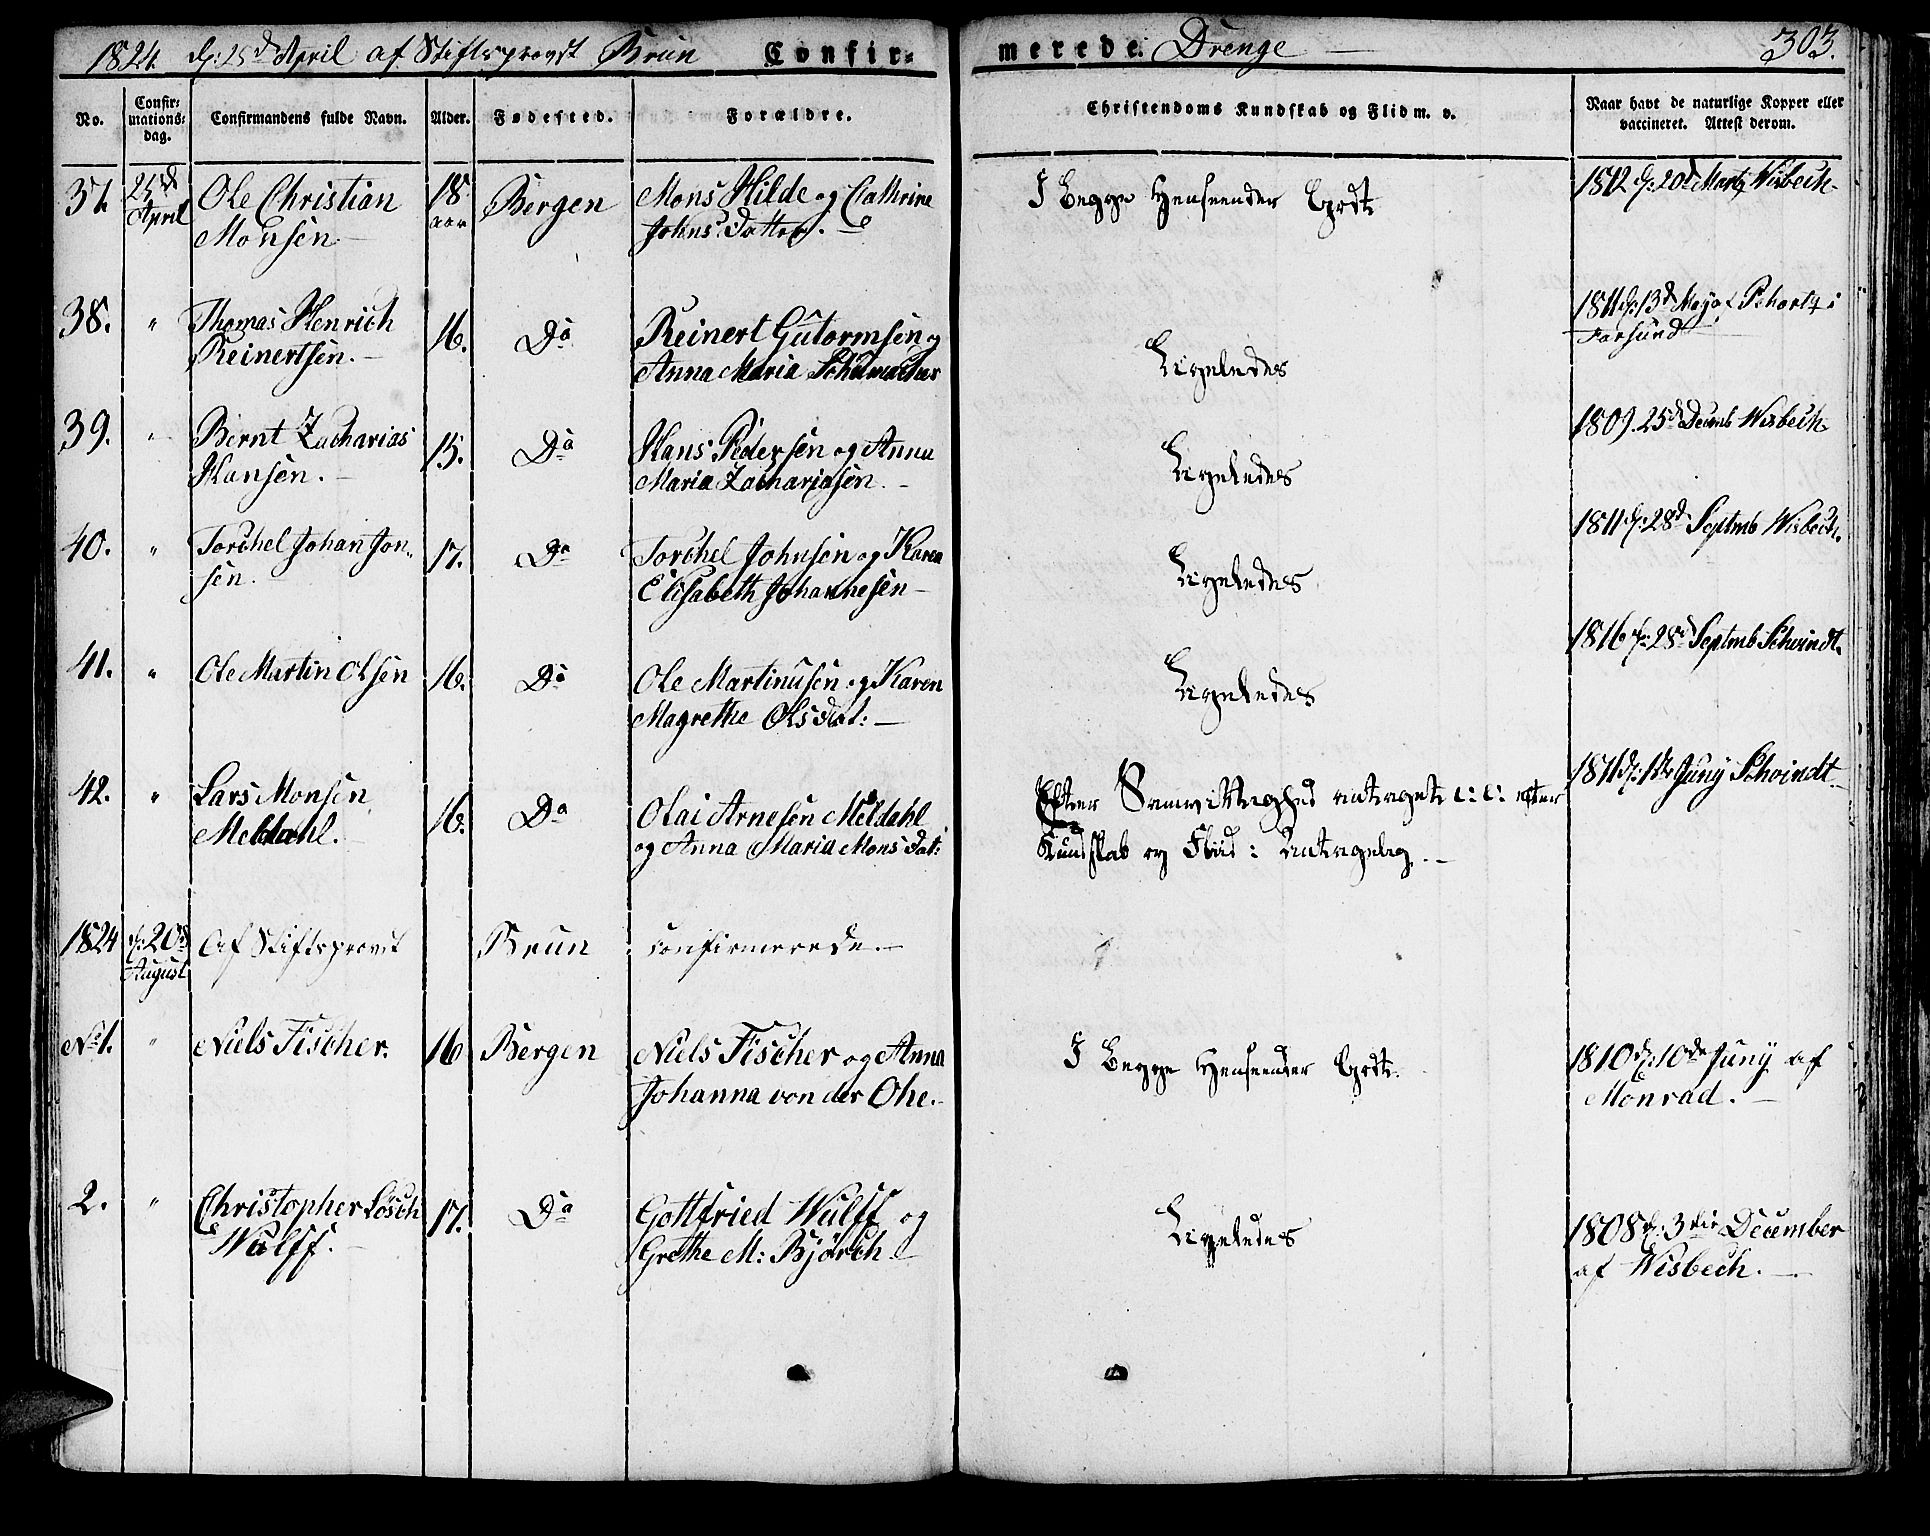 1824. d: 25d April af Stiftsprovst Brun Confir-
merede Drenge — 303.
No. Confir-mations-dag. Confirmandens fulde Navn. Alder. Fødested. Forældre. Christendoms Kundskab og Flid m. v. Naar havt de naturlige Kopper eller vaccineret. Attest derom.
37. 25d Ole Christian 18 Bergen Mons Hilde og Cathrine I Begge Henseender Godt 1812 d: 20d Marty Wisbech.
April Monsen — aar Johns Datter. —
38. " Thomas Henrich 16. Do Reinert Gutormsen og Ligeledes 1811 d: 13d May af Schartz i
Reinertsen. — Anna Maria Farsund
39. " Bernt Zacharias 15. Do Hans Pedersen og Anna Ligeledes 1809. 25d Decemb Wisbech.
Hansen. — Maria Zachariasen. —
40. " Torchel Johan Jon- 17. Do Torchel Johnsen og Karen Ligeledes 1811 d: 28d Septmb Wisbech.
sen. Elisabeth Johannesen —
41. " Ole Martin Olsen 16. Do Ole Martinusen og Karen Ligeledes 1816 d: 28d Septmb Schwindt.
Magrethe Olsdat: —
42. " Lars Monsen 16. Do Olai Arnesen Meldahl Efter Samvittighed antaget efter 1811 d: 1ste Juny Schwindt
Meldahl. — og Anna Maria Monsdat: Kundskab og Fliid: Antagelig. —
1824 d: 20d Af Stiftsprovst Brun confirmerede. —
August
No 1. " Niels Fischer. 16 Bergen Niels Fischer og Anna I Begge Henseender Godt. 1810 d: 10de Juny af
Johanna von der Ohe. — Monrad. —
2. " Christopher Losch 17. Do Gottfried Wulff og Ligeledes 1808 d: 3die December
Wulff. — Grethe M: Bjørch — af Wisbech. —